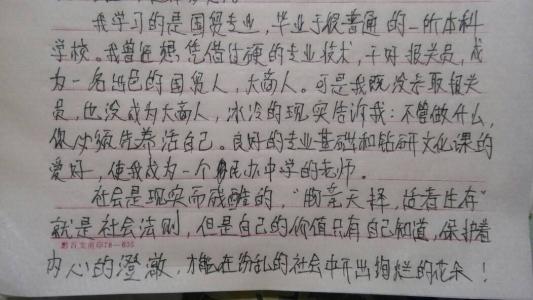 我学习的是国贸专业，毕业于很普通的一所本科
学校。我曾通想凭借过硬的专业技术，干好报关员，成
为一名出色的国贸人，大商人。可是我既没考取报关
员，也没成为大商人，冰冷的现实告诉我：不管做什么，
你必须先养活自己。良好的专业基础和钻研文化课的
爱好，使我成为一个民办中学的老师。
社会是现实而残酷的，“物竞天择，适者生存”
就是社会法则，但是自己的价值只有自己知道，保护着
黔百文南印78—635
内心的澄澈，才能在纷乱的社会中开出绚烂的花朵！